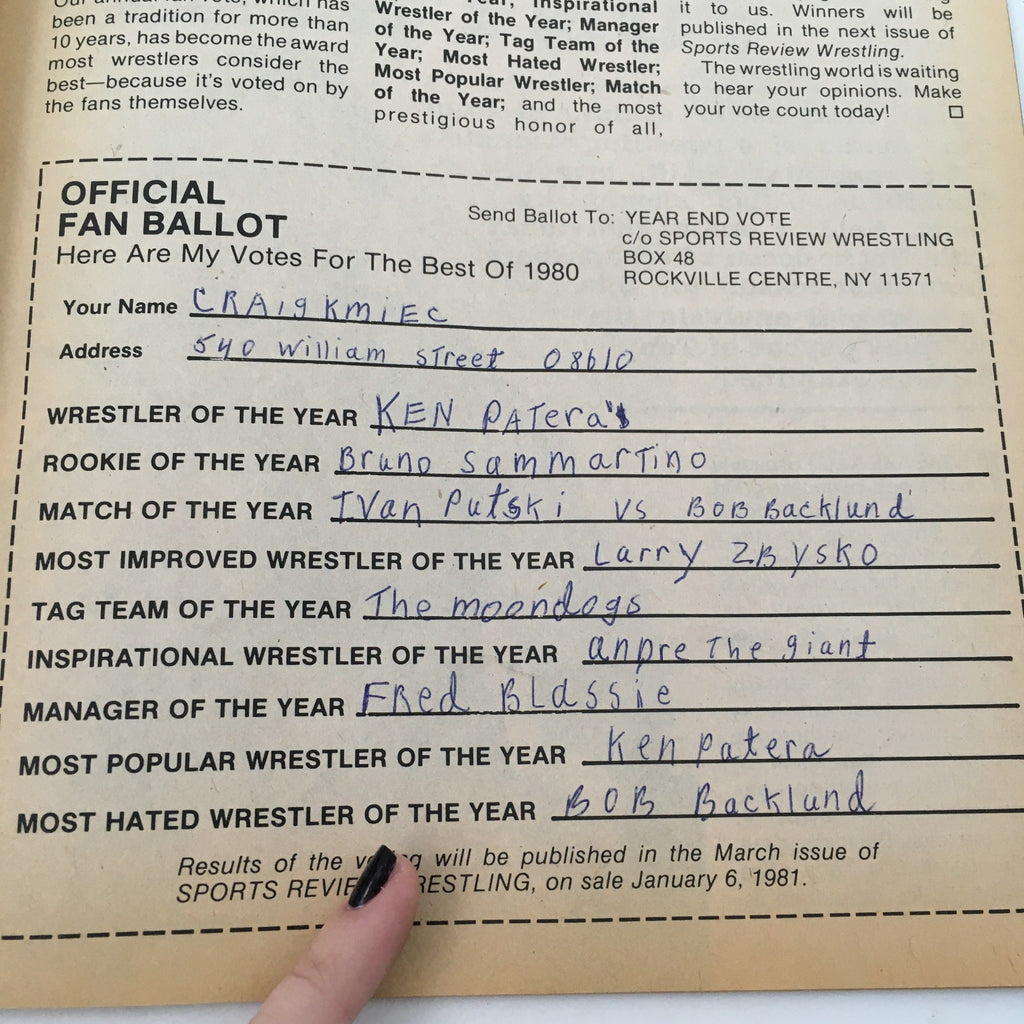 been a tradition for more than
10 years, has become the award
most wrestlers consider the
best—because it's voted on by
the fans themselves.
Inspirational
Wrestler of the Year; Manager
of the Year; Tag Team of the
Year; Most Hated Wrestler;
Most Popular Wrestler; Match
of the Year; and the most
prestigious honor of all,
it to us. Winners will be
published in the next issue of
Sports Review Wrestling.
The wrestling world is waiting
to hear your opinions. Make
your vote count today! □
OFFICIAL
FAN BALLOT
Here Are My Votes For The Best Of 1980
Send Ballot To: YEAR END VOTE
c/o SPORTS REVIEW WRESTLING
BOX 48
ROCKVILLE CENTRE, NY 11571
Your Name CRAig KmiEc
Address 540 William street 08610
WRESTLER OF THE YEAR KEN PATera's
ROOKIE OF THE YEAR Bruno SammarTino
MATCH OF THE YEAR IVan Putski VS BOB Backlund
MOST IMPROVED WRESTLER OF THE YEAR Larry ZBYSKO
TAG TEAM OF THE YEAR The moondogs
INSPIRATIONAL WRESTLER OF THE YEAR anpre The giant
MANAGER OF THE YEAR FRed Blassie
MOST POPULAR WRESTLER OF THE YEAR Ken patera
MOST HATED WRESTLER OF THE YEAR BOB Backlund
Results of the voting will be published in the March issue of
SPORTS REVIEW WRESTLING, on sale January 6, 1981.